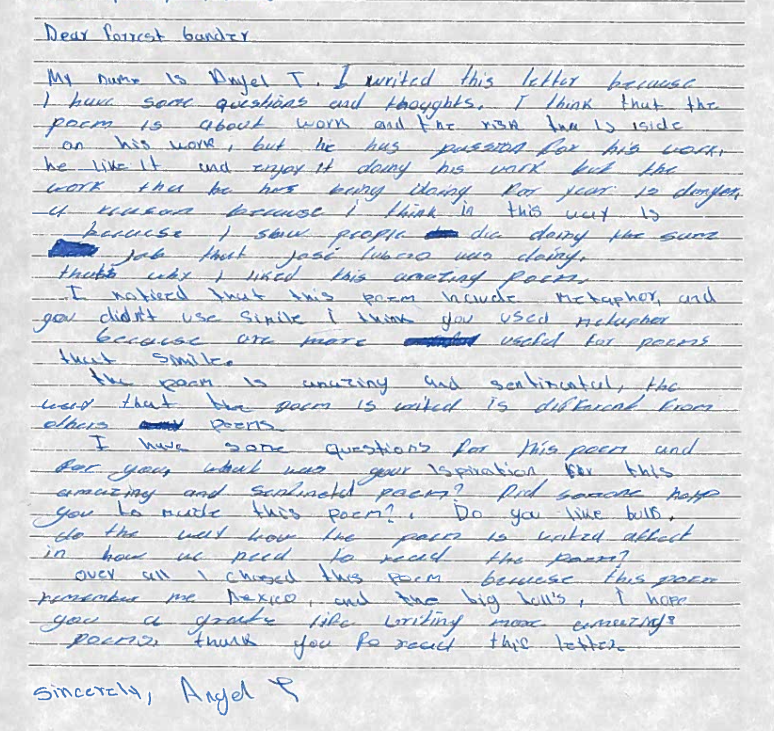 Dear Forrest Gander
My name is Angel T. I writed this letter because
I have some questions and thoughts. I think that the
poem is about work and the risk tha is iside
on his work, but he has passion for his work,
he like it and enjoy it doing his work but the
work tha he has being doing for year is danger,
a reason because I think in this way is
because I saw people die doing the same
job that José was doing.
thats why I liked this amazing poem.
I noticed that this poem include metaphor, and
you didn't use simile I think you used metaphor
because are more useful for poems
that simile.
the poem is amazing and sentimental, the
way that the poem is writed is different from
others poems.
I have some questions for this poem and
for you, what was your Ispiration for this
amazing and poem? Did somone help
you to made this poem?. Do you like bulls,
do the way how the poem is writed affect
in how we need to read the poem?
over all I chosed this poem because this poem
remember me Mexico, and the big bull's, I hope
you a grate life writing more amazing
poems, thank you fo read this letter.
Sincerely, Angel T